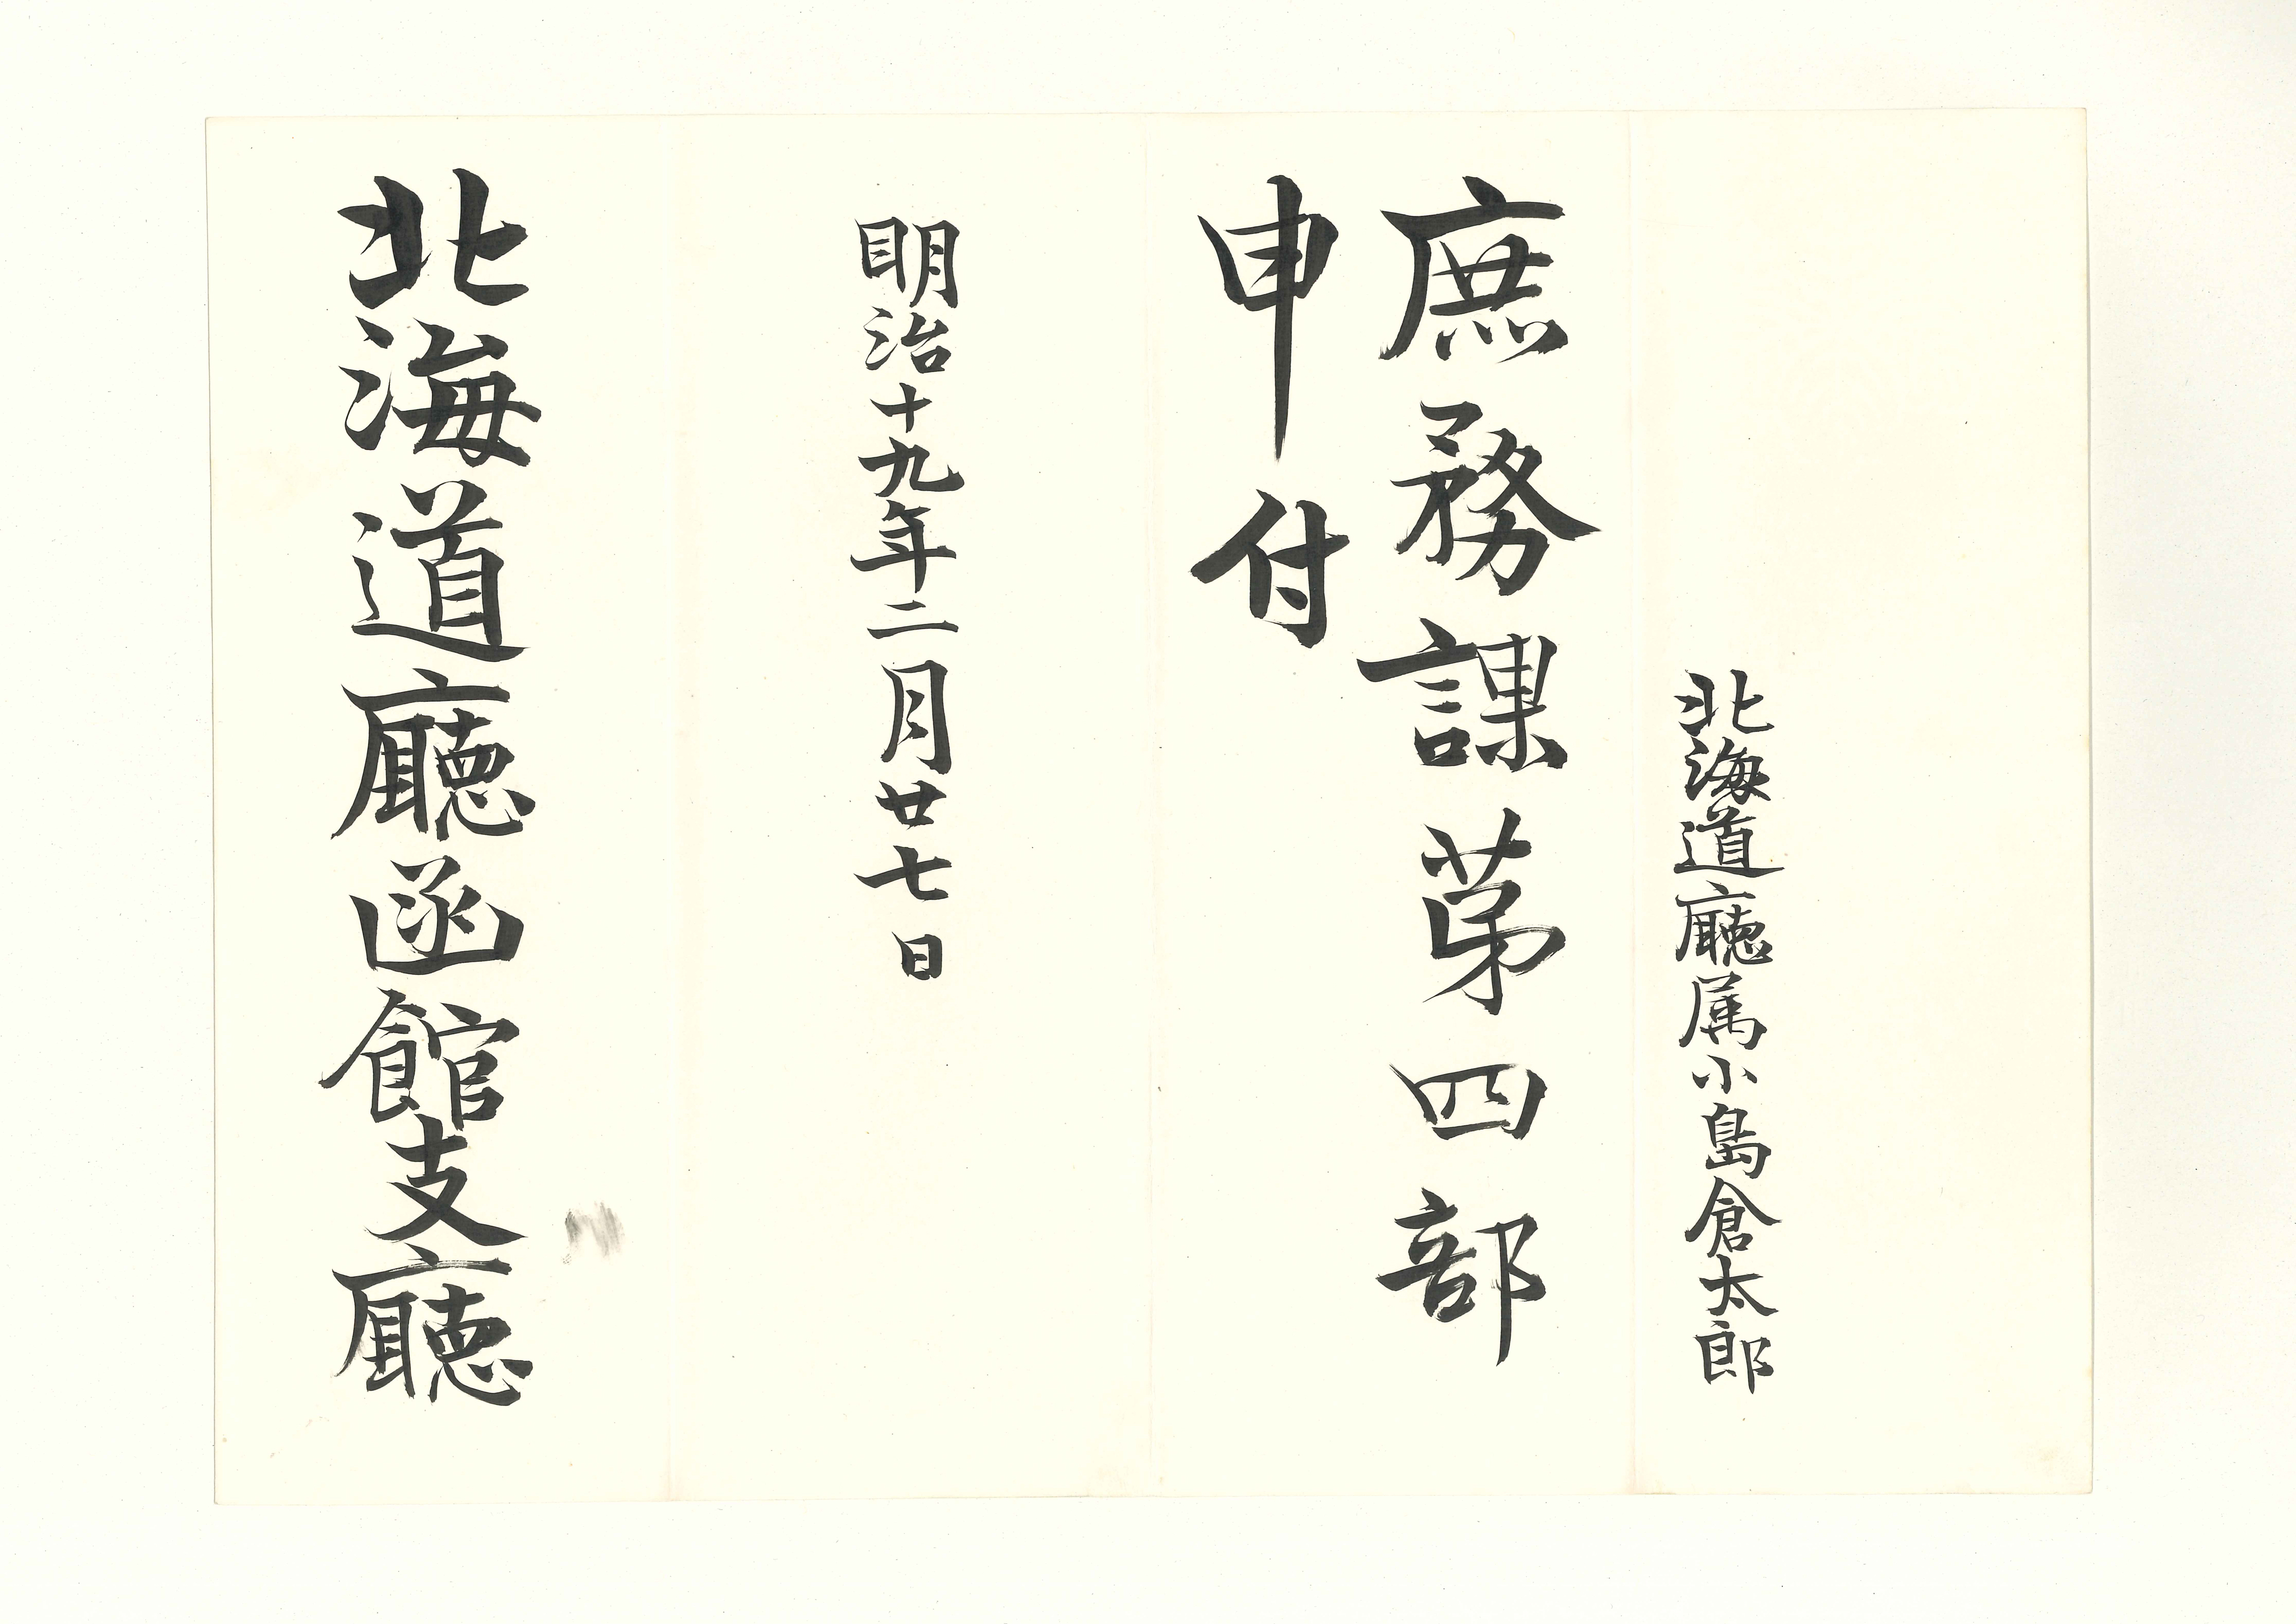 北海道廳属小島倉太郎
庶務課苐四部
申付
明治十九年二月廿七日
北海道廳函館支廳